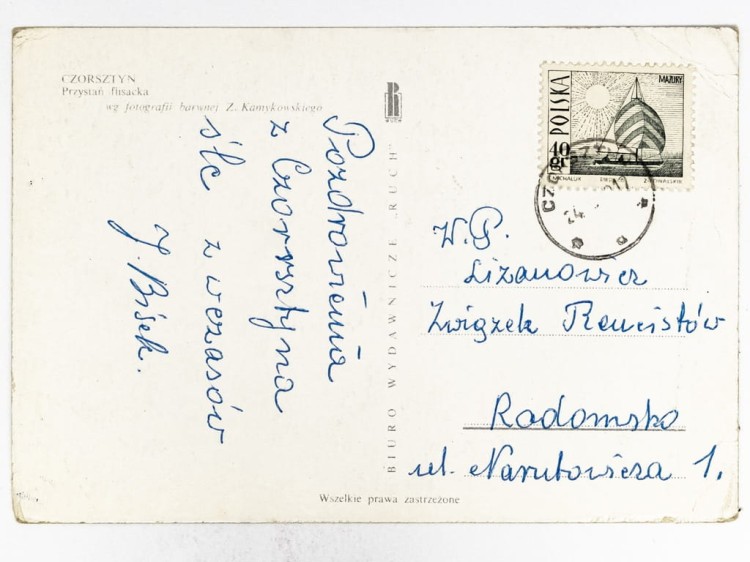 CZORSZTYN
Przystań flisacka
wg fotografii barwnej Z. Kamykowskiego
Pozdrowienia
z Czorsztyna
śle z wczasów
J. Bisek.
BIURO WYDAWNICZE „RUCH"
R
POLSKA
MAZURY
40 gr
MICHALUK
CZORSZTYN
24
W.P.
Lizanowicz
Związek Rencistów
Radomsko
ul. Narutowicza 1.
Wszelkie prawa zastrzeżone